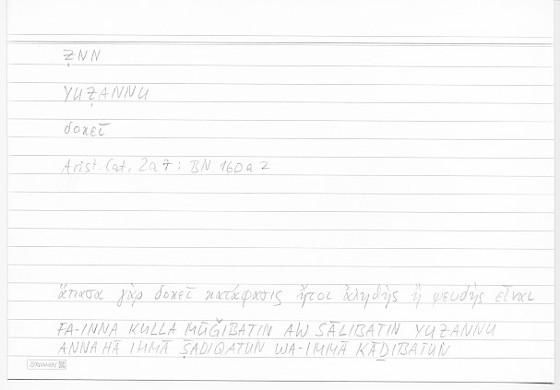 ẒNN
YUẒANNU
δοκεῖ
Arist. Cat. 2a7: BN 160a2
ἅπασα γὰρ δοκεῖ κατάφασις ἤτοι ἀληθὴς ἢ ψευδὴς εἶναι
FA-INNA KULLA MŪǦIBATIN AW SĀLIBATIN YUẒANNU
ANNAHĀ IMMĀ ṢADIQATUN WA-IMMĀ KĀḎIBATUN